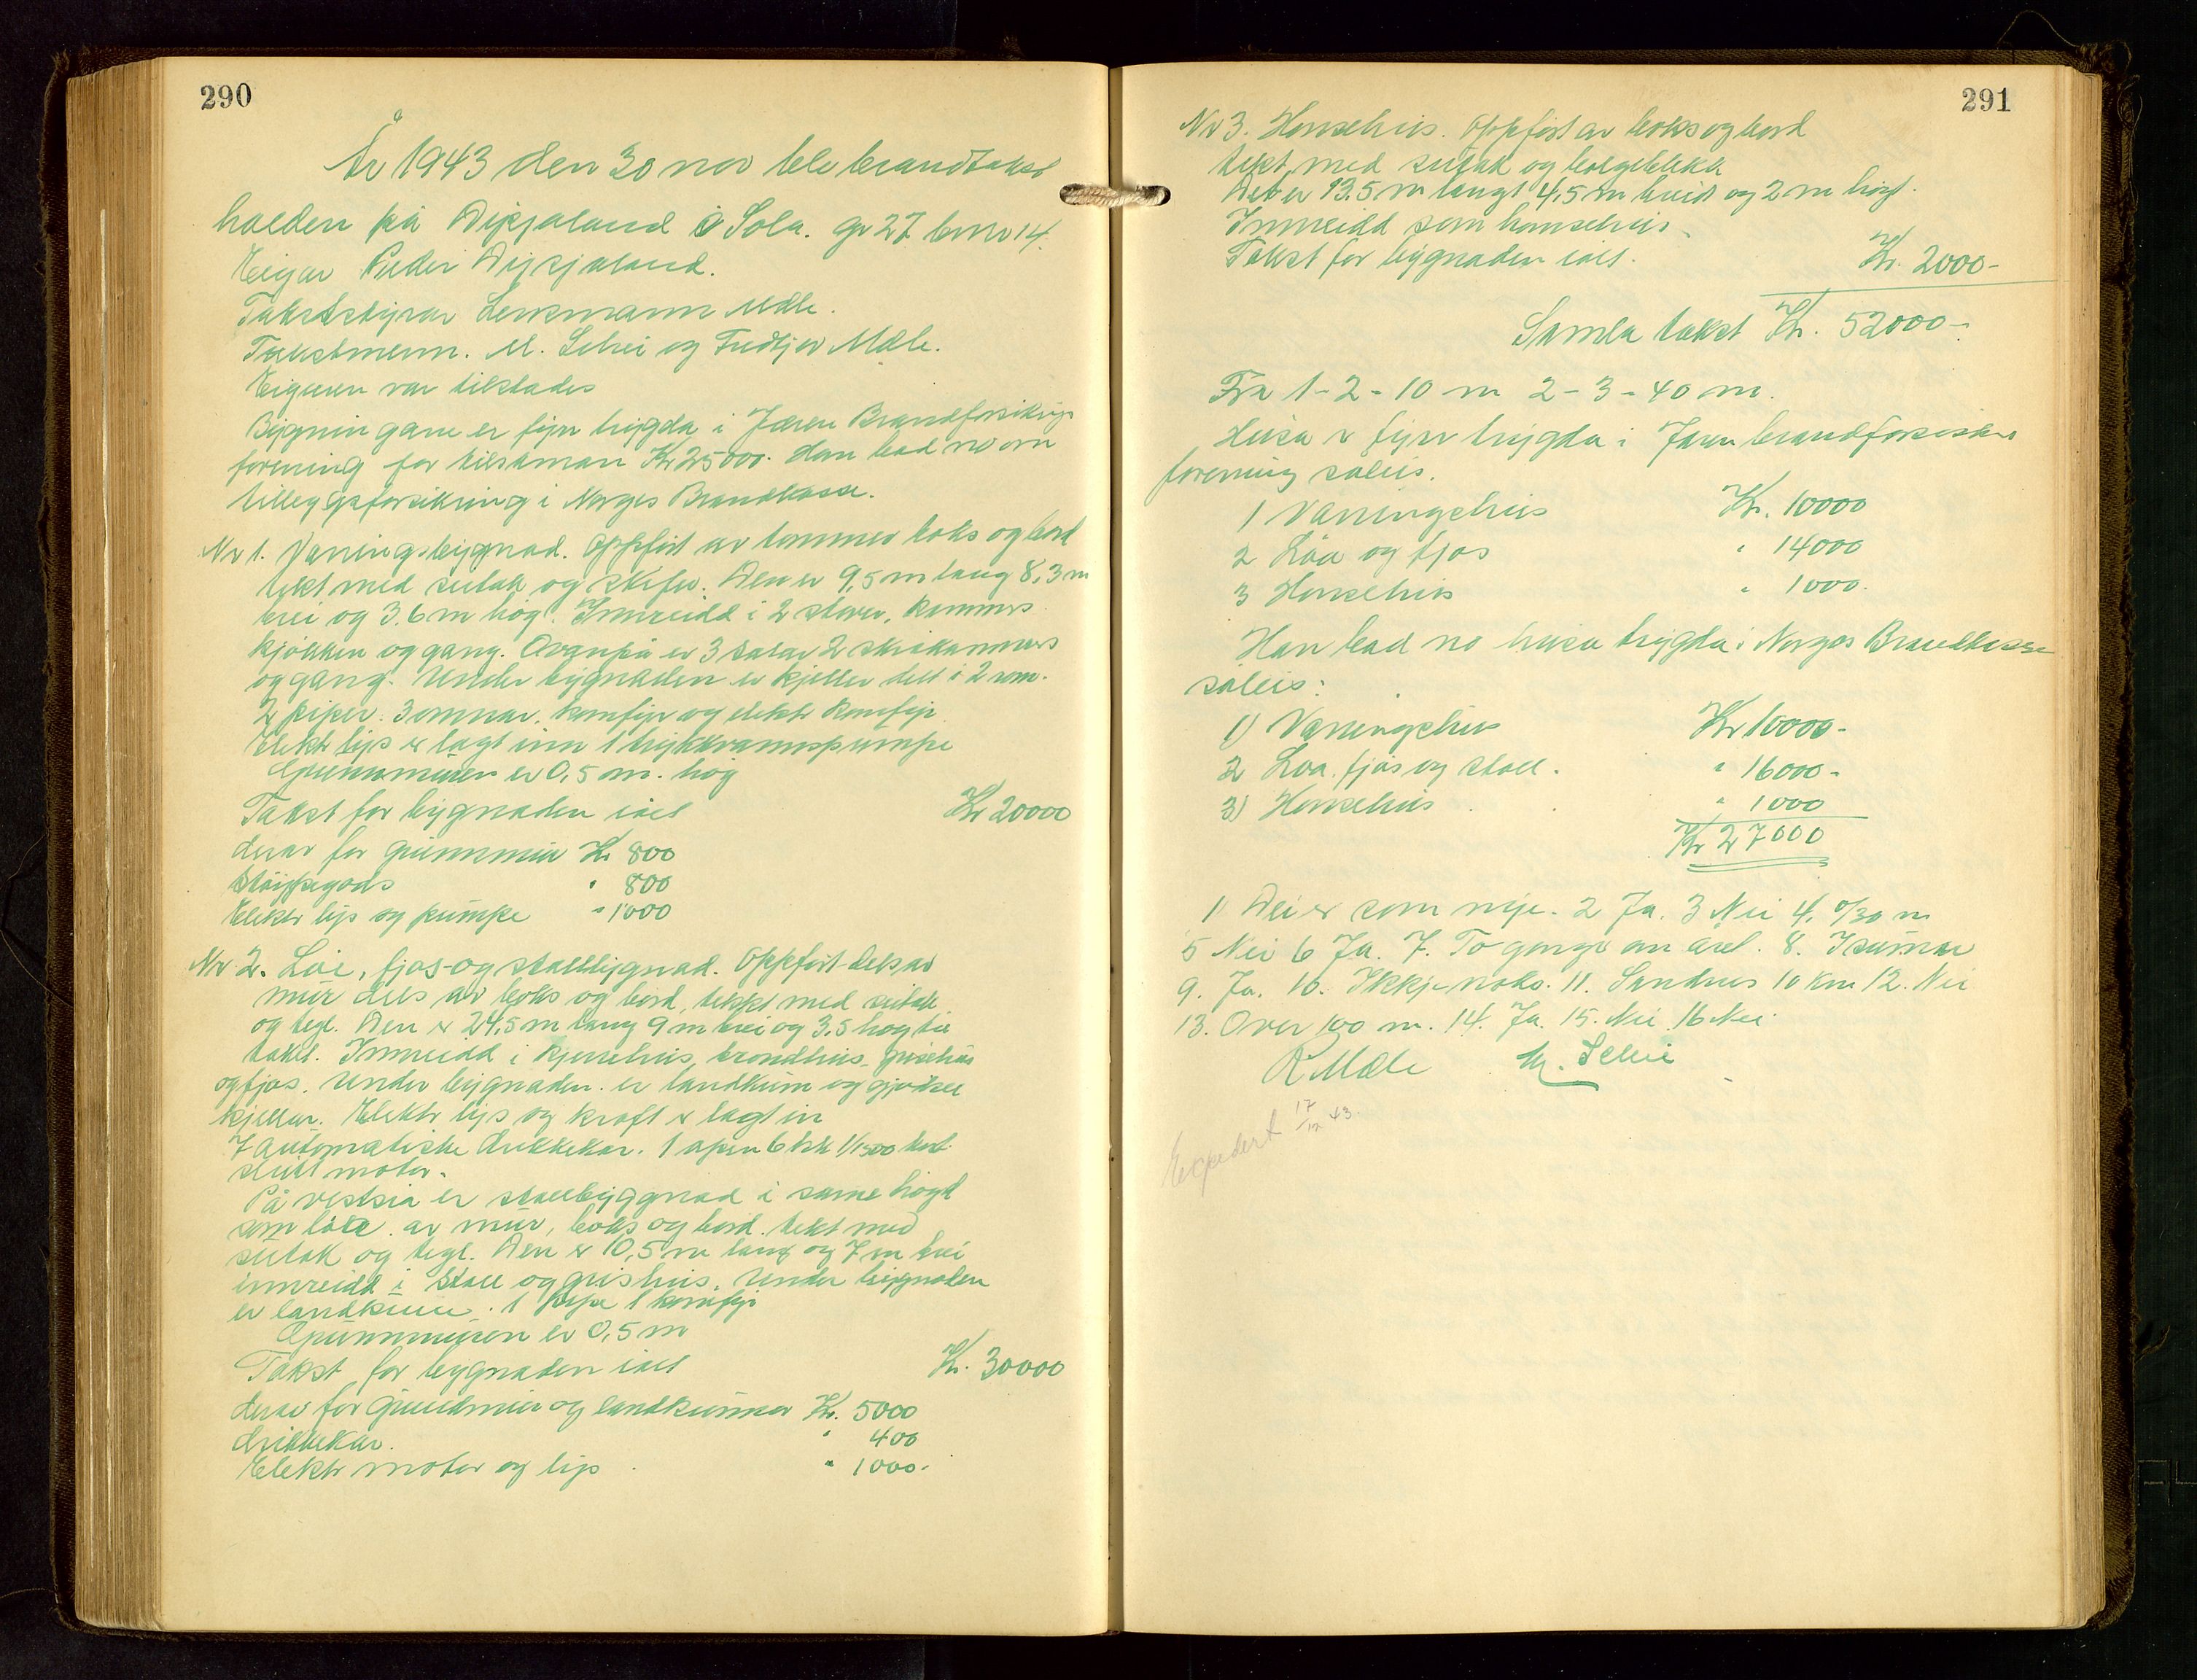 290
År 1943 den 30 nov ble brandtakst
halden på Dysjaland i Sola. gr 27 brnr 14.
Eigar Peder Dysjaland.
Takststyrar Lensmann Mæle.
Takstmenn. M. Selvi og Fridtjov Mæle.
Eigaren var tilstades
Bygningane er fyrr trygda i Jæren Brandforsikrings
forening for tilsaman Kr 25000. Han bad no om
tilleggsforsikring i Norges Brandkasse.
Nr 1. Vaningsbygnad. Oppført av tømmer boks og bord
tekt med sutak og skifer. Den er 9,5 m lang 8,3 m
brei og 3.6 m høg. Innreidd i 2 stover, kammers
kjøkken og gang. Ovanpå er 3 salar 2 skråkammers
og gang. Under bygnaden er kjeller delt i 2 rom.
2 piper. 3 omnar. komfyr og elektr komfyr
Elektr lys er lagt inn 1 trykkvannspumpe
Grunnmuren er 0,5 m. høg
Takst for bygnaden ialt Kr 20000
derav for grunnmur Kr 800
Støypegods " 800
Elektr lys og pumpe " 1000
Nr 2. Løe, fjos- og stallbygnad. Oppført dels av
mur dels av boks og bord, tekkt med sutak
og tegl. Den er 24,5 m lang 9 m brei og 3,5 høg til
taket. Innreidd i kjørehus, brondhus, grisehus
og fjos. Under bygnaden er landkum og gjødsel
kjellar. Elektr lys og kraft er lagt in
7 automatiske drikkekar. 1 open 6 hk 1/1500 kort
slutt motor.
På vestsia er stallbyggnad i same høgd
som løa av mur, boks og bord. tekt med
sutak og tegl. Den er 10,5 m lang og 7 m brei
innreidd i stall og grishus. Under bygnaden
er landkum. 1 pipe 1 komfyr
Grunnmuren er 0,5 m
Takst for bygnaden ialt Kr. 30000
derav for grundmur og landkummer Kr. 5000
drikkekar. " 400
Elektr motor og lys " 1000.
291
Nr 3. Hønsehus. Oppført av boks og bord
tekt med sutak og bølgeblekk
Det er 13.5 m langt 4,5 m breid og 2 m høgt.
Innreidd som hønsehus.
Takst for bygnaden ialt. Kr. 2000-
Samla takst Kr. 52000-
Frå 1-2-10 m 2-3-40 m.
Husa er fyrr trygda i Jæren brandforsikrings
forening såleis.
1 Vaningshus Kr. 10000
2 Løa og fjos " 14000
3 Hønsehus " 1000.
Han bad no husa trygda i Norges Brandkasse
såleis:
1) Vaningshus Kr 10000-
2 Løa. fjøs og stall. " 16000-
3) Hønsehus " 1000
Kr 27000
1) Dei er som nye. 2 Ja. 3 Nei 4. 0/30 m
5 Nei 6 Ja. 7. To gonger om året. 8. I sumar
9. Ja. 10. Ikkje noko. 11. Sandnes 10 km 12. Nei
13. Over 100 m. 14. Ja. 15. Nei. 16 Nei.
R Mæle M. Selvi
Expedert 17/12 43.